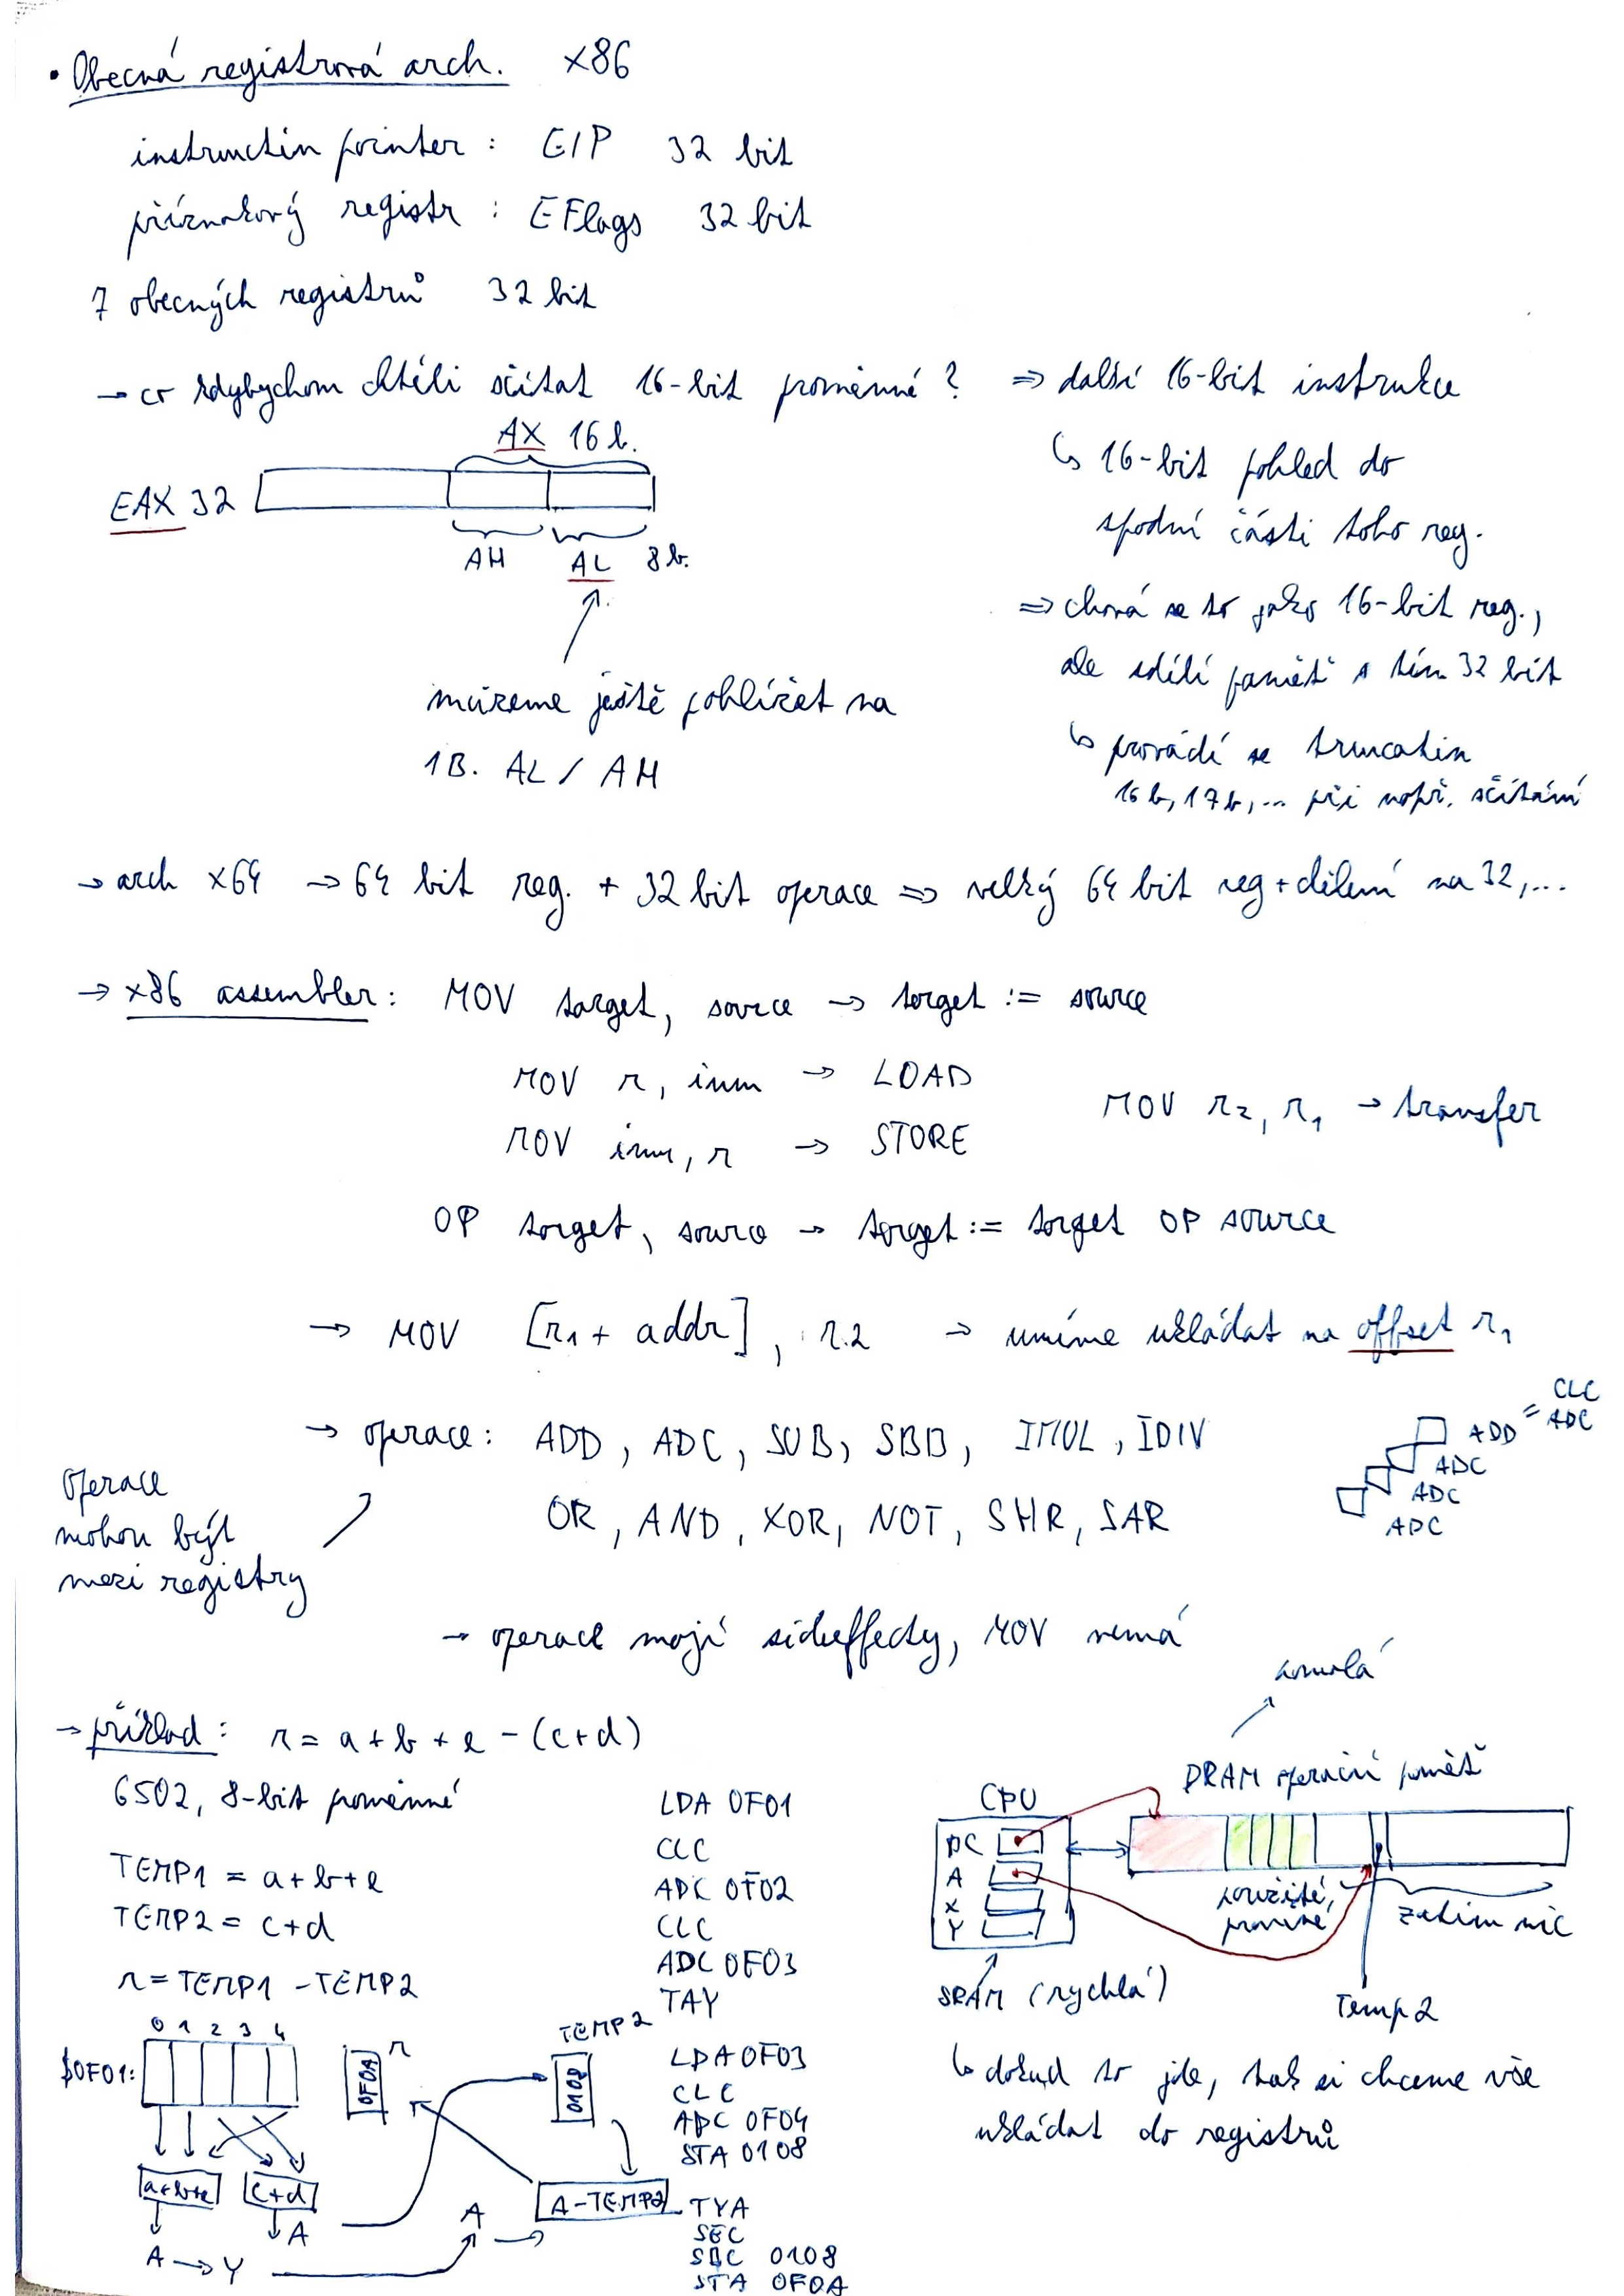 • Obecná registrová arch. x86
instructin pointer : EIP 32 bit
příznakový registr : EFlags 32 bit
7 obecných registrů 32 bit
→ co kdybychom chtěli sčítat 16-bit proměnné ? ⇒ další 16-bit instrukce
↳ 16-bit pohled do
spodní části toho reg.
⇒ chová se to jako 16-bit reg.,
ale sdílí paměť s tím 32 bit
↳ provádí se truncatin
16 b, 17 b, ... při např. sčítání
AX 16 b.
EAX 32
AH AL 8 b.
můžeme ještě pohlížet na
1B. AL / AH
→ arch x64 → 64 bit reg. + 32 bit operace ⇒ velký 64 bit reg + dělení na 32, ...
→ x86 assembler: MOV target, source → target := source
MOV r, imm → LOAD
MOV imm, r → STORE
MOV r2, r1 → transfer
OP target, source → target := target OP source
→ MOV [r1 + addr], r2 → umíme ukládat na offset r1
→ operace: ADD, ADC, SUB, SBB, IMUL, IDIV
OR, AND, XOR, NOT, SHR, SAR
Operace
mohou být
mezi registry
ADD = CLC
ADC
ADC
ADC
ADC
→ operace mají sideffecty, MOV nemá
→ příklad: r = a + b + e - (c+d)
6502, 8-bit proměnné
TEMP1 = a+b+e
TEMP2 = c+d
r = TEMP1 - TEMP2
0 1 2 3 4
$0F01:
0F0A r
TEMP2
0108
a+b+e c+d
A → Y
A
A
A-TEMP2
LDA 0F01
CLC
ADC 0F02
CLC
ADC 0F03
TAY
LDA 0F03
CLC
ADC 0F04
STA 0108
TYA
SEC
SBC 0108
STA 0F0A
DRAM operační paměť
CPU
PC
A
X
Y
SRAM (rychlá)
zatím nic
Temp2
↳ dokud to jde, tak si chceme vše
ukládat do registrů